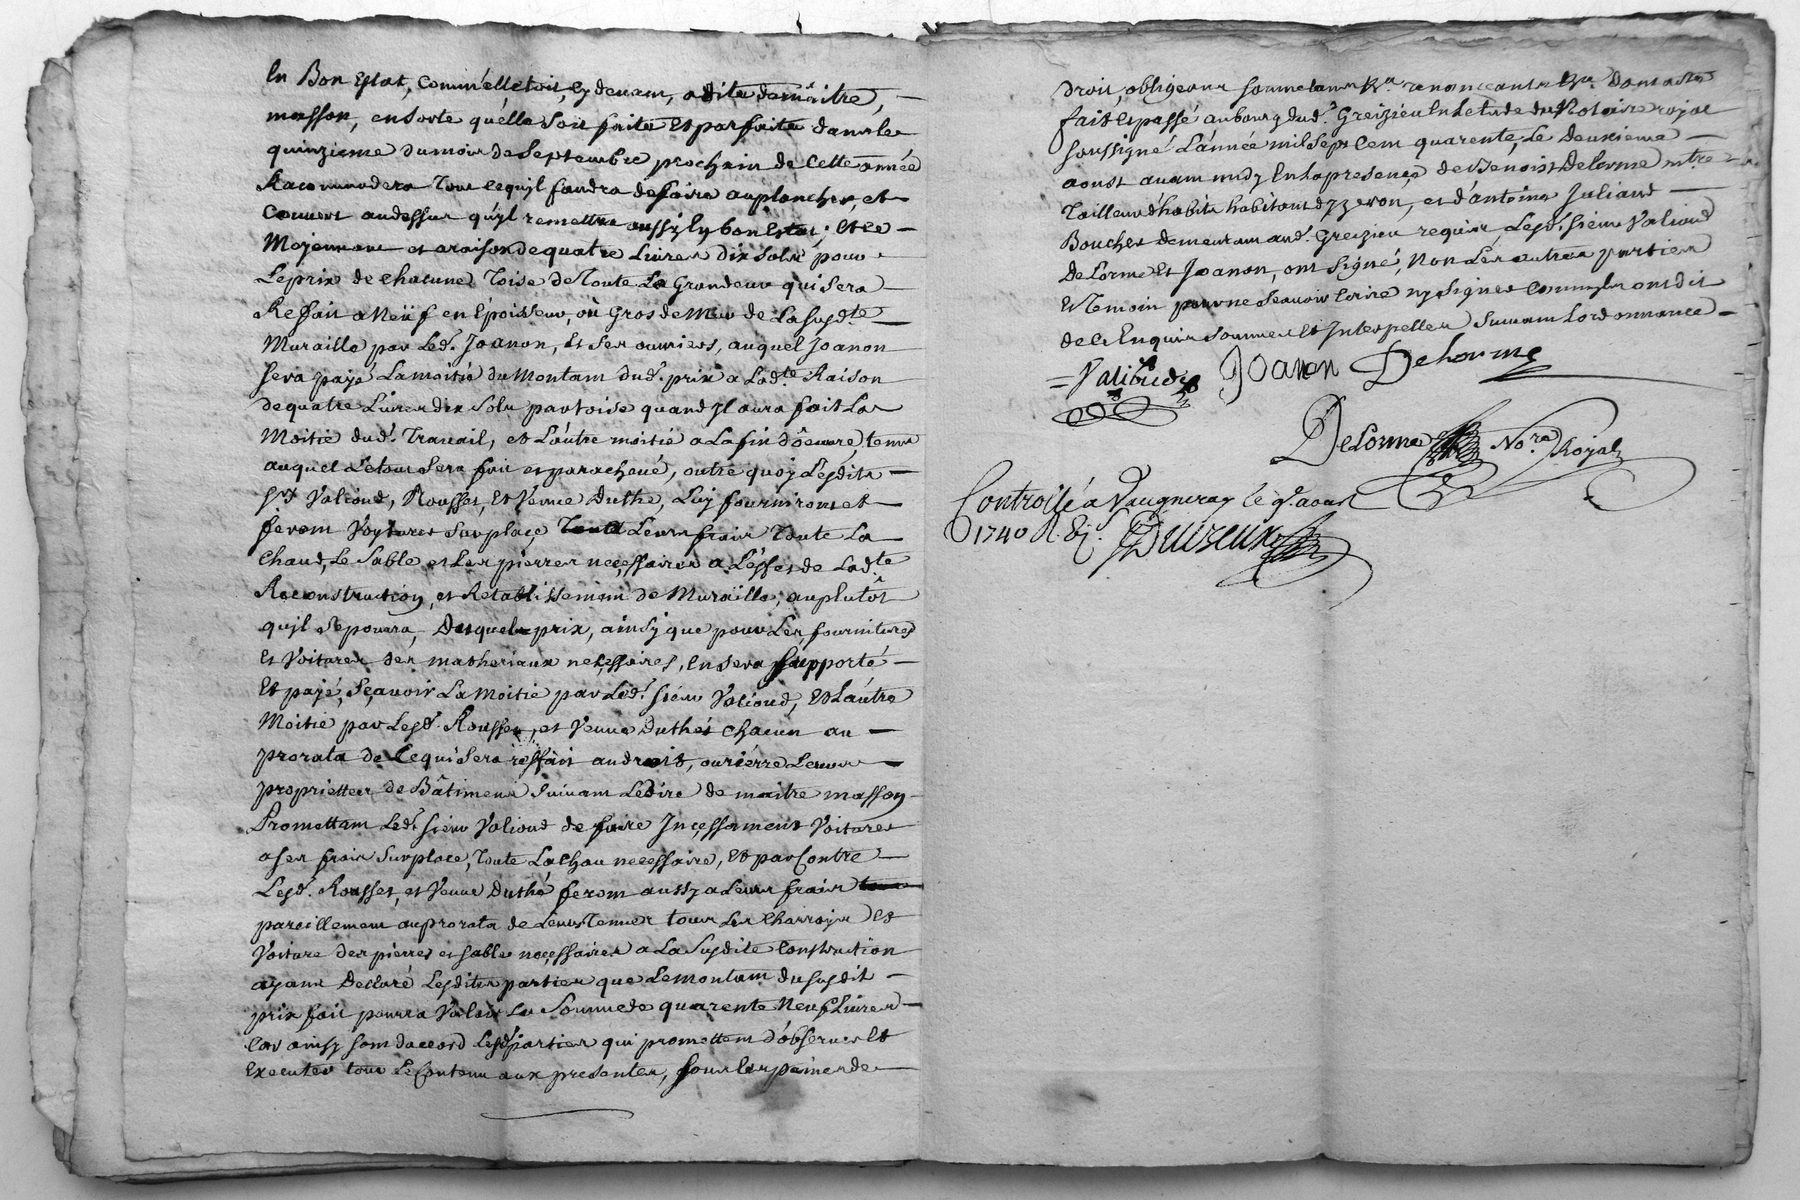 En Bon Estat, Comm'elle toit, Cydevant, a dite de maitre,
masson, ensorte qu'elle Soit faite Et parfaite dans le
quinzieme du mois de Septembre prochain de Cette année
Racommodera Tout Ce qu'jl faudra de faire au plancher et
Couvert audessus qu'jl remettra aussy En bon Estat; Et Ce
Moyennant et a raison de quatre Livres dix Sols pour
Le prix de Chacune Toise de Toute La Grandeur qui Sera
Reffait a Neüf en Epoisseur, où Gros de Mur de La Susd.te
Muraille par Led. Joanon, Et Ses ouvriers, auquel Joanon
Sera payé La moitié du Montant dud. prix a Lad.te Raison
de quatre Livres dix Sols par toise quand Jl aura fait La
Moitié dud. Travail, et L'autre moitié a La fin d'oeuvre, tems
auquel Le tout Sera fait et parachevé, outre quoy Lesdits
Srs Valioud, Rousset, Et Veuve Duthé, Luy fourniront et
feront Voyturer Sur place a Leurs frais Toute La
Chaud, Le Sable et Les pierres necessaires a L'effet de Lad.te
Reconstruction, et Retablissement de Muraille, au plutôt
qujl Se poura, Desquels prix, ainsy que pour Les fournitures
Et Voitures des matheriaux necessaires, En Sera Supporté
Et payé, Sçavoir La Moitié par Led. Siéur Valioud, Et L'autre
Moitié par Lesd. Rousset, et Veuve Duthé Chacun au
prorata de Ce qui Sera reffait au droit, ou riérre Leurs
proprietter de Bâtiments Suivant Le Dire de maitre masson
Promettant Led. Siéur Valioud de faire Jncessament Voiturer
a Ses frais Sur place, Toute La Chau necessaire, Et par Contre
Lesd. Rousset, et Veuve Duthé feront aussy a Leurs frais
pareillement au prorata de Leurs Tenues tous Les Charrois Et
Voiture des pierres et Sable necessaires a La Susdite Construction
ayant Declaré Lesdites parties que Le montant du Susdit
prix fait pourra Valoir La Somme de quarente Neuf Livres
Car ainsy Sont daccord Lesd. parties qui promettent d'observer Et
Executer tout Le Contenu aux presentes, Sous Les peines de
Droit, obligeant Soumettant &a. renonceant &a. Dont acte
fait Et passé au bourg dud. Greizieu En L'etude du Notaire royal
Soussigné L'année mil Sept Cent quarente, Le Deuxieme
aoust avant midy En La presence de Benoist Delorme mtre
Tailleur d'habits habitant d'Yzeron, et d'antoine Juliand
Boucher demeurant aud. Greizieu requis, Lesd. Siéur Valioud
De Lorme Et Joanon, ont Signé, Non Les autres parties
Et Temoin pour ne Sçavoir Ecrire ny Signer Comm'jls ont dit
de Ce Enquis Sommés Et Jnterpellés Suivant Lordonnance
Valioud Joanon Delorme
DeLorme No.re Royal
Controllé a Vaugneray le 9e. aoust
1740 R.